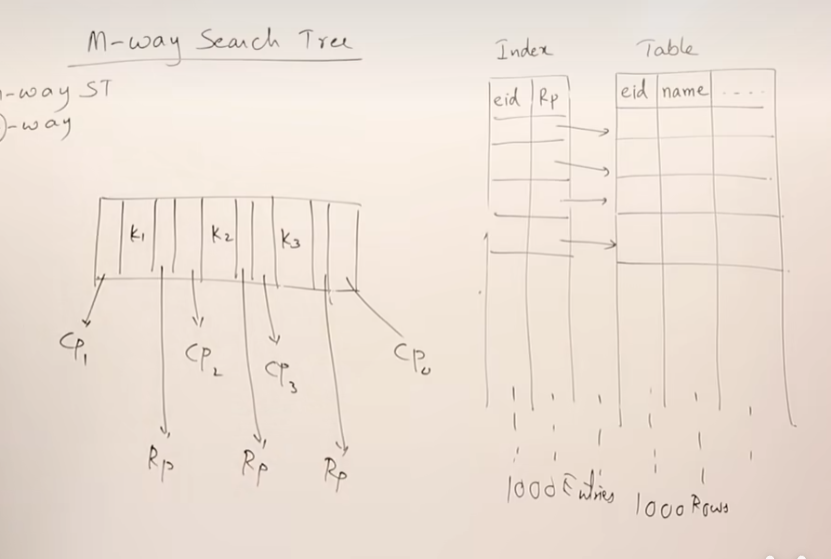 M-way Search Tree
-way ST
-way
K1 K2 K3
CP1
CP2
CP3
CP4
Rp
Rp
Rp
Index
eid Rp
1000 Entries
Table
eid name ....
1000 Rows